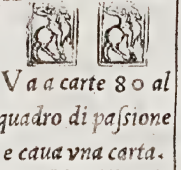 Va a carte 80 al
quadro di paſsione
e caua vna carta.